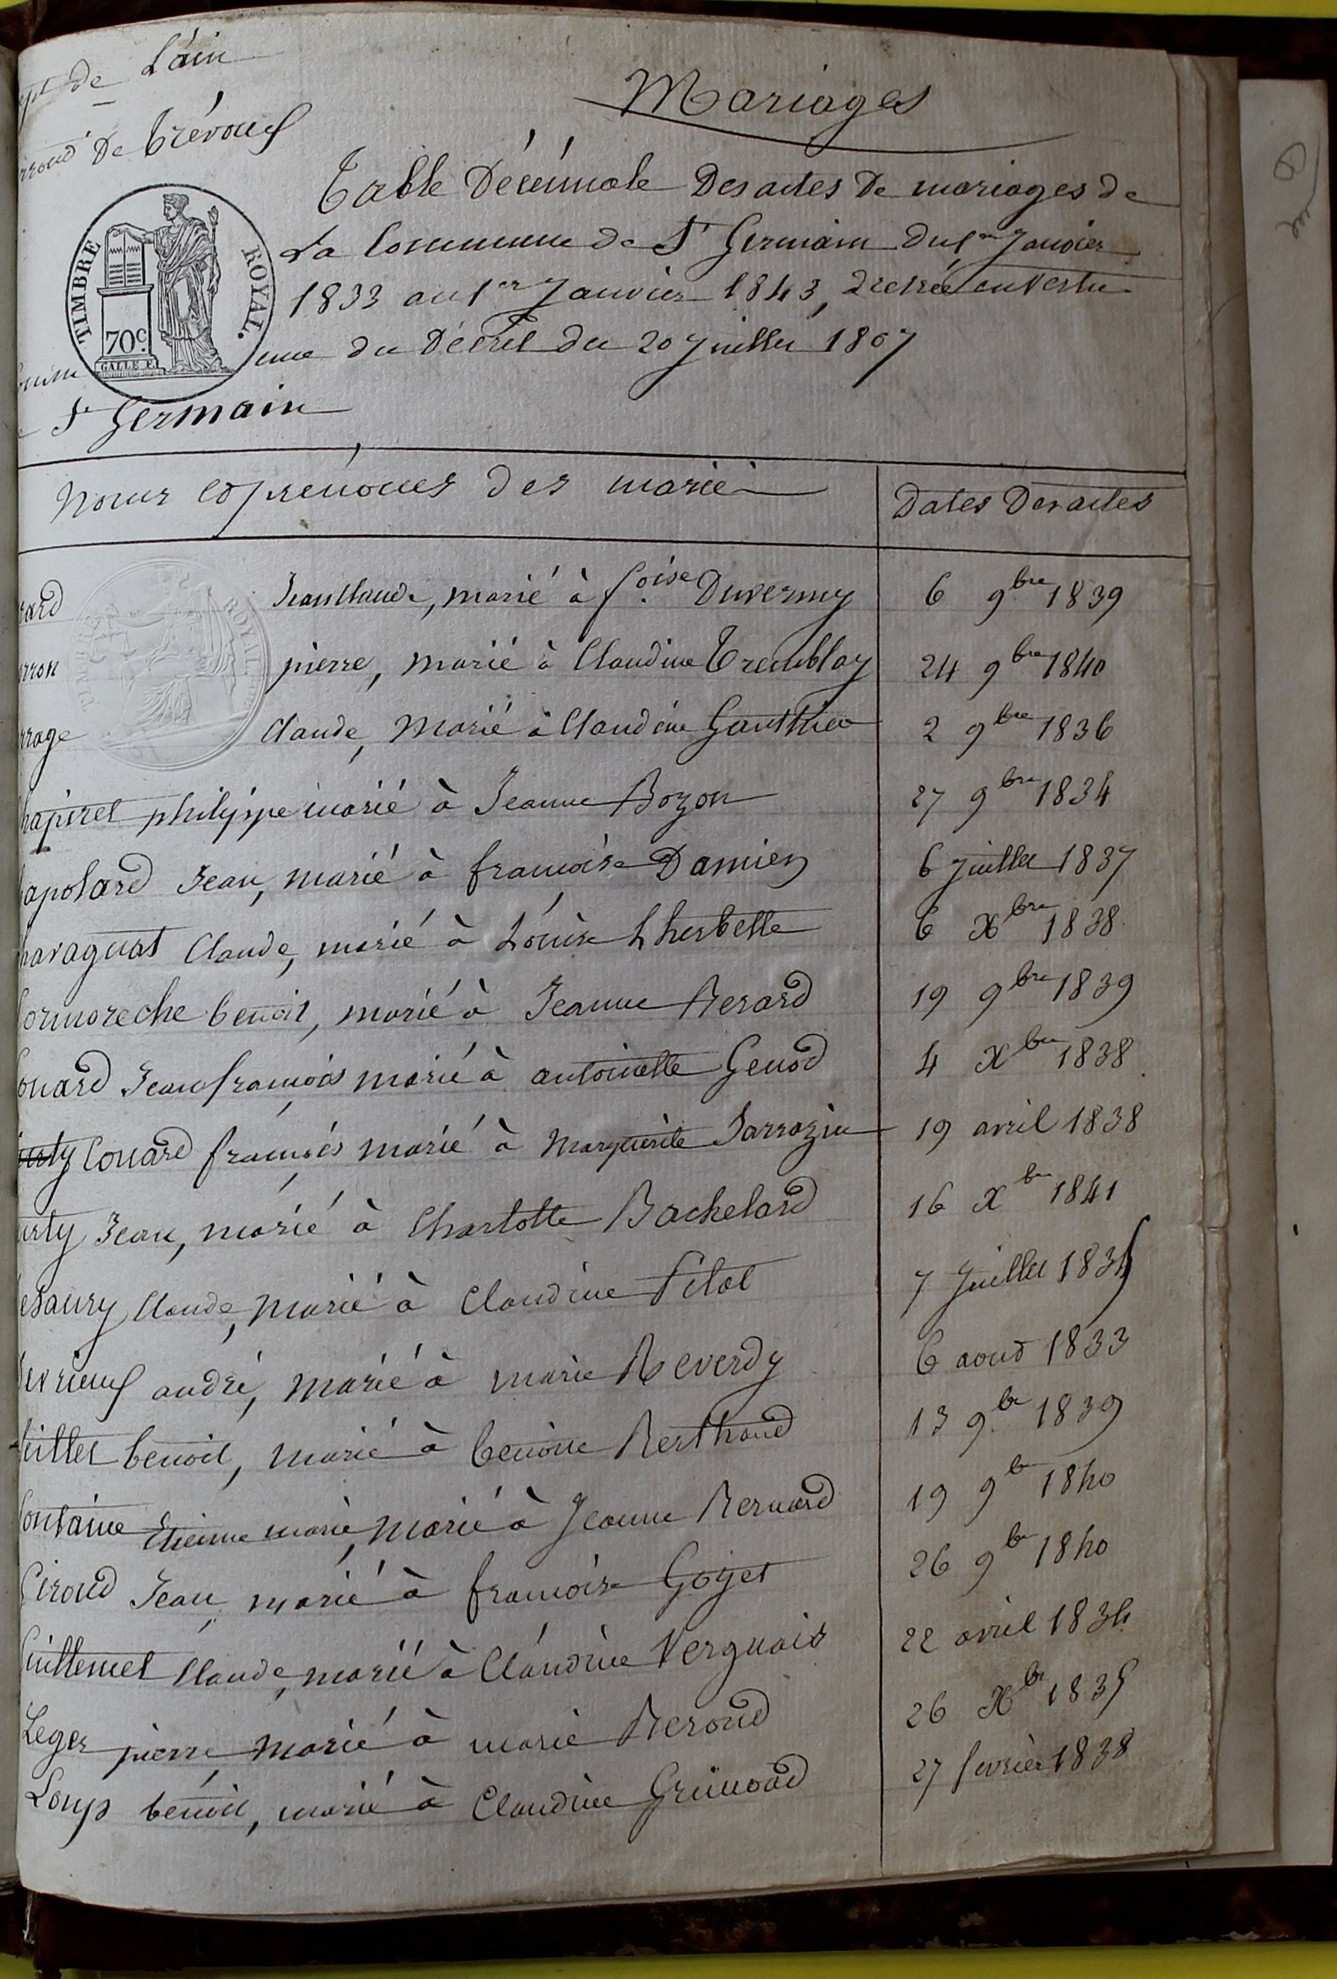 de L'ain
Mariages
de trévoux
Table Décennale Des actes De mariages de
La Commune de St Germain du 1er Janvier
1833 au 1er Janvier 1843, en vertu
TIMBRE ROYAL.
70c.
GALLE F.
du Décret du 20 juillet 1807
St Germain
Noms et prénoms des mariés
Dates Des actes
ard Jean Claude, marié à foise Duvernay 6 9bre 1839
rron pierre, marié à Claudine Tremblay 24 9bre 1840
rage Claude, Marié à Claudine Gauthier 2 9bre 1836
hapiret philippe marié à Jeanne Bozon 27 9bre 1834
apolard Jean, marié à francoise Damien 6 Juillet 1837
haraguat Claude, marié à Louise Lherbette 6 Xbre 1838
ormoreche benoit, marié à Jeanne Berard 19 9bre 1839
ouard Jean francois marié à antoinette Genod 4 Xbre 1838
urty Couard francois marié à Marguerite Sarrazin 19 avril 1838
urty Jean, marié à Charlotte Bachelard 16 Xbre 1841
esaury Claude, Marié à Claudine Pilot 7 Juillet 1835
evrieux andré, Marié à marie Reverdy 6 aout 1833
uillet benoit, marié à benoite Berthaud 13 9bre 1839
ontaine Etienne marie, Marié à Jeanne Bernard 19 9bre 1840
Giroud Jean marié à francoise Goyet 26 9bre 1840
Guillemet Claude, marié à Claudine Vergnais 22 avril 1834
Leger pierre marié à marie Beroud 26 Xbre 1835
Loup benoit, marié à Claudine Grimoad 27 fevrier 1838